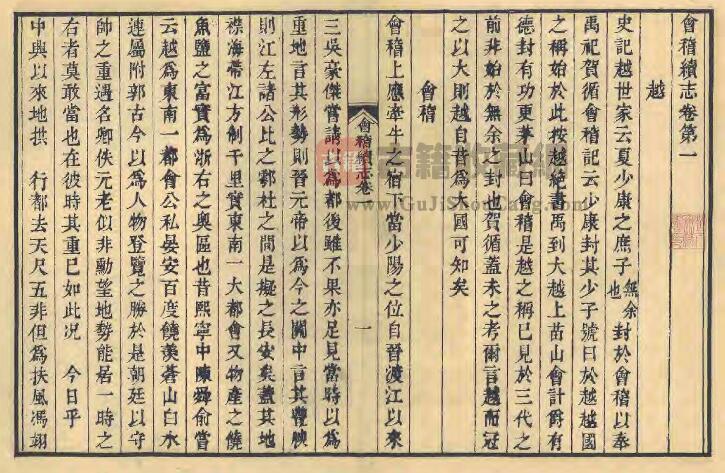 會稽續志卷第一
越
史記越世家云夏少康之庶子無余也封於會稽以奉
禹祀賀循會稽記云少康封其少子號曰於越越國
之稱始於此按越絶書禹到大越上苗山會計爵有
德封有功更茅山曰會稽是越之稱已見於三代之
前非始於無余之封也賀循蓋未之考爾言越而冠
之以大則越自昔為大國可知矣
會稽
會稽上應牽牛之宿下當少陽之位自晉渡江以來
會稽續志卷一
一
三吳豪傑嘗請以為都後雖不果亦足見當時以為
重地言其形勢則晉元帝以為今之關中言其豐腴
則江左諸公比之鄠杜之間是擬之長安矣蓋其地
襟海帶江方制千里實東南一大都會又物產之饒
魚鹽之富實為浙右之奧區也昔熙寧中陳舜俞嘗
云越為東南一都會公私晏安百度饒羡蒼山白水
連屬附郭古今以為人物登覽之勝於是朝廷以守
帥之重遇名卿佚元老似非勳望地勢能居一時之
右者莫敢當也在彼時其重已如此況 今日乎
中興以來地拱 行都去天尺五非但為扶風馮翊
古籍收藏網
www.GuJiShouCang.com